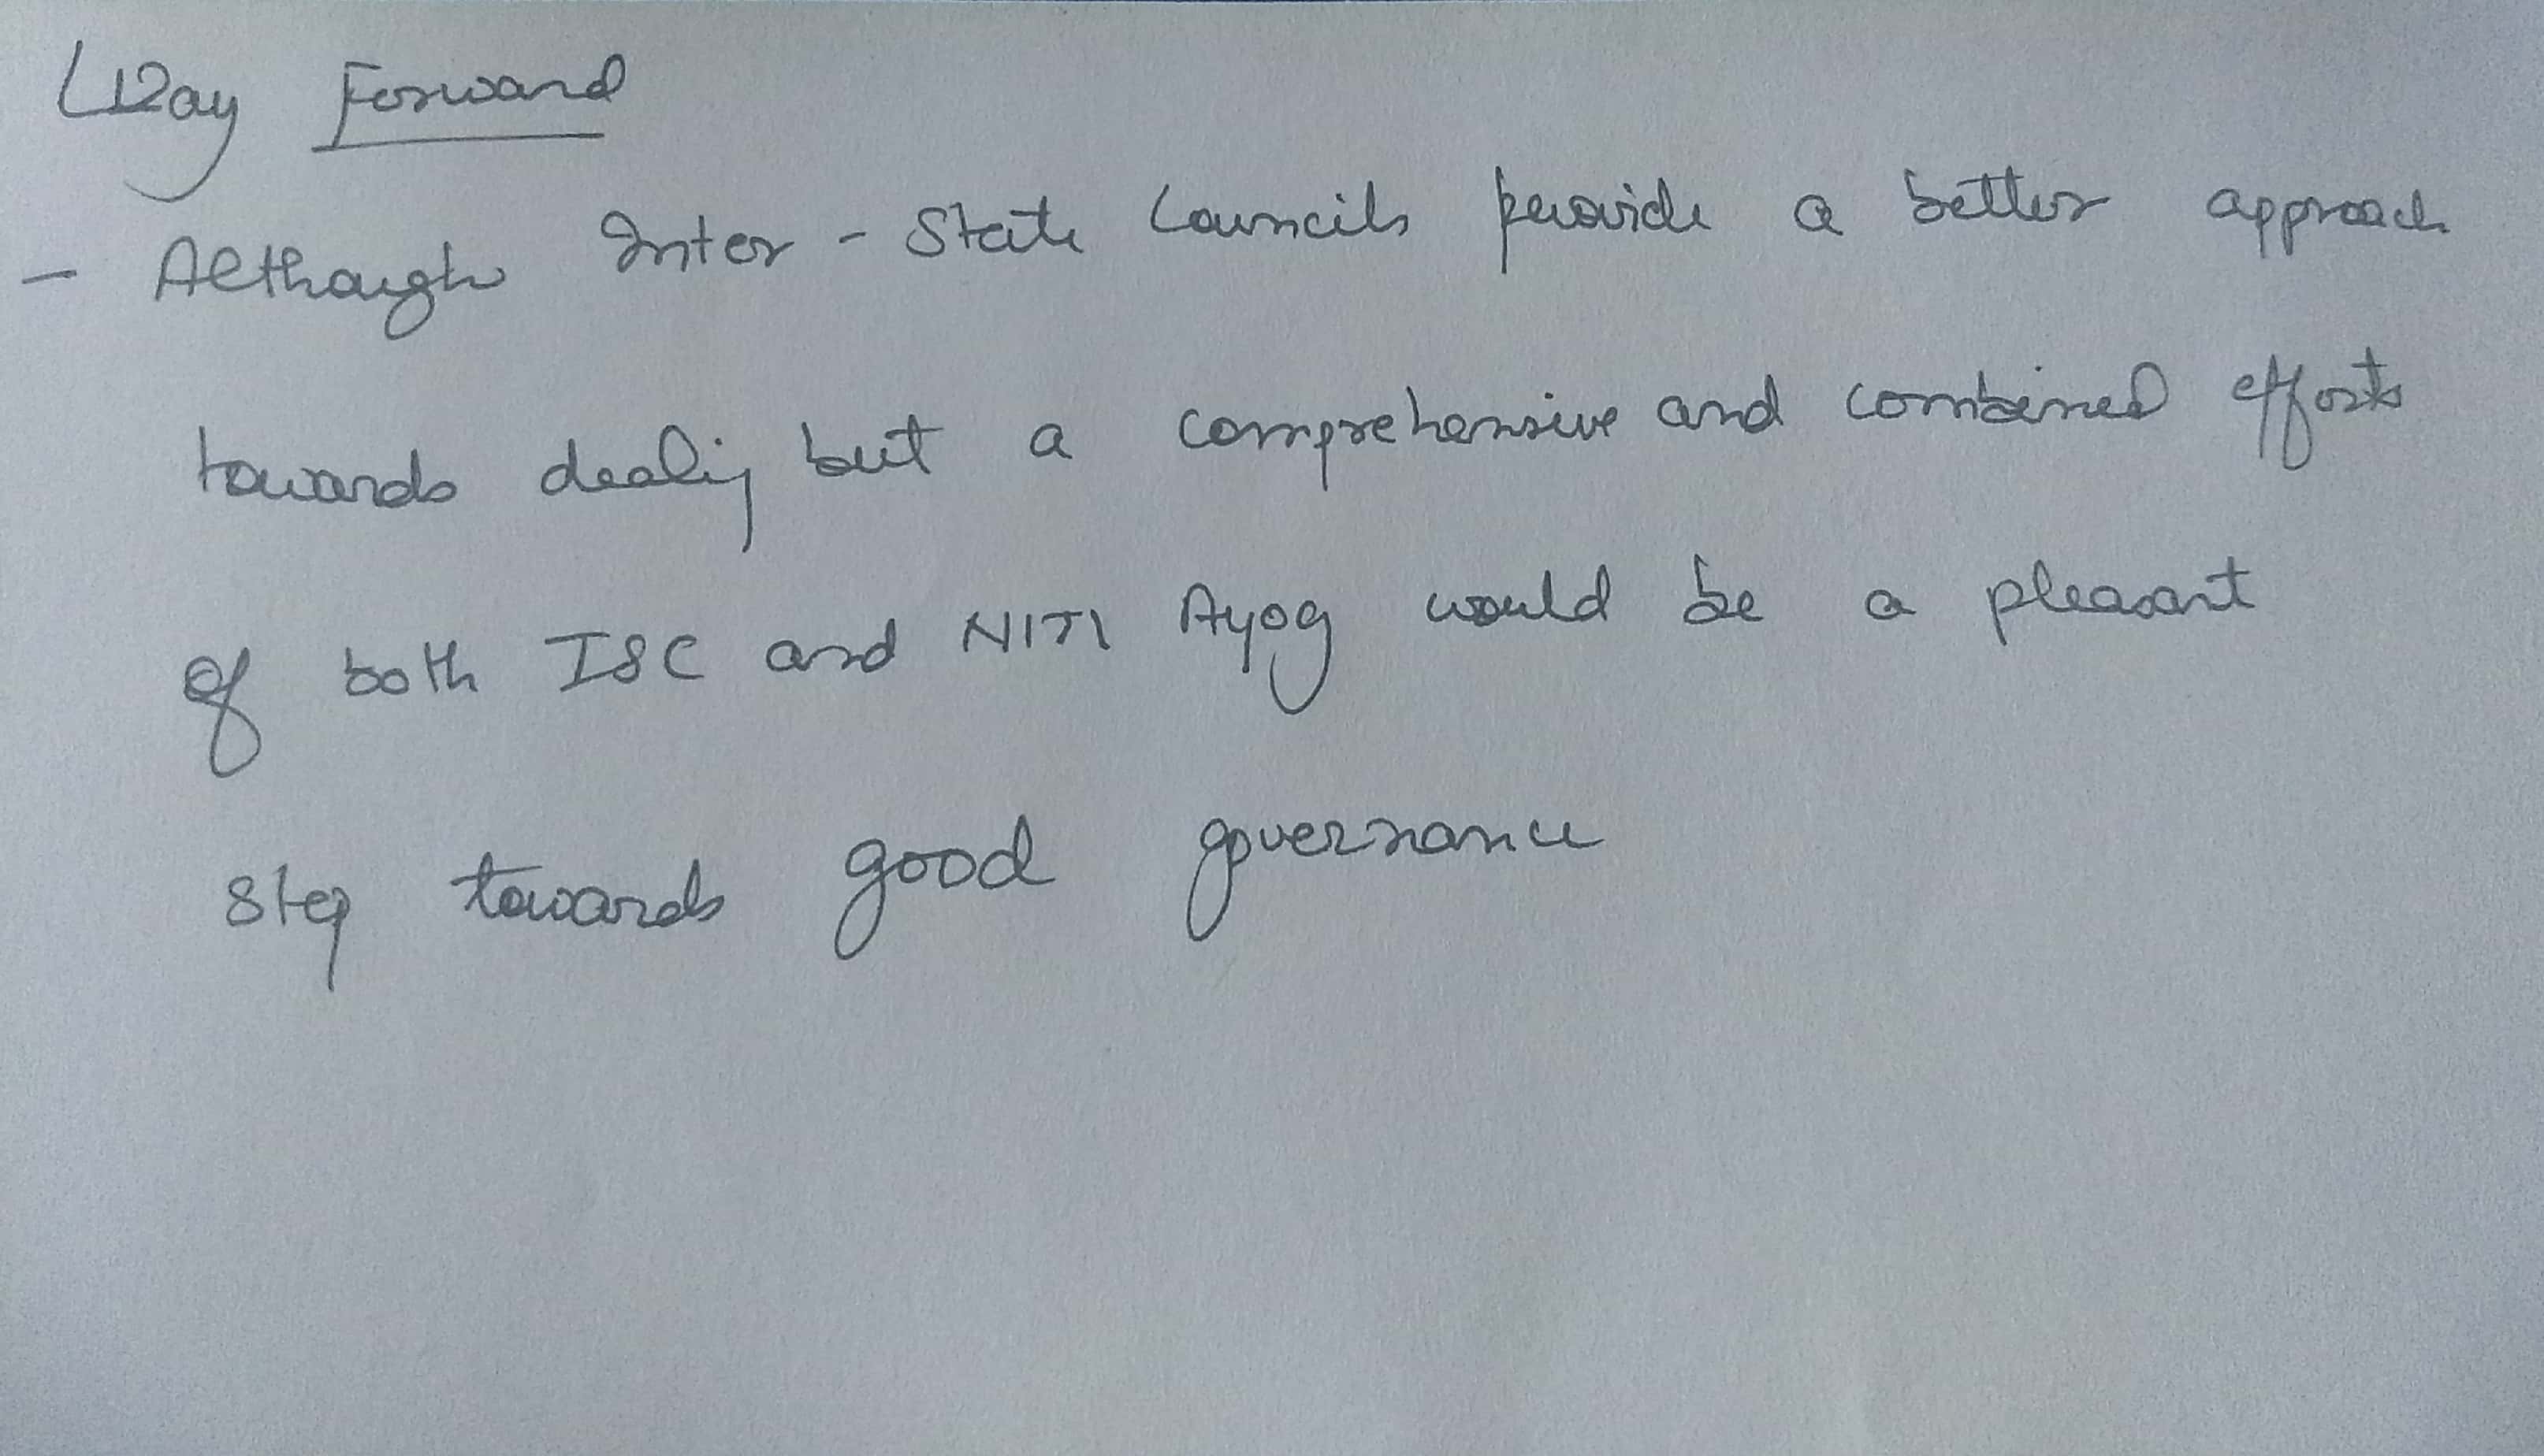 Way Forward
- Although Inter-State Councils provide a better approach
towards dealing but a comprehensive and combined efforts
of both ISC and NITI Ayog would be a pleasant
step towards good governance